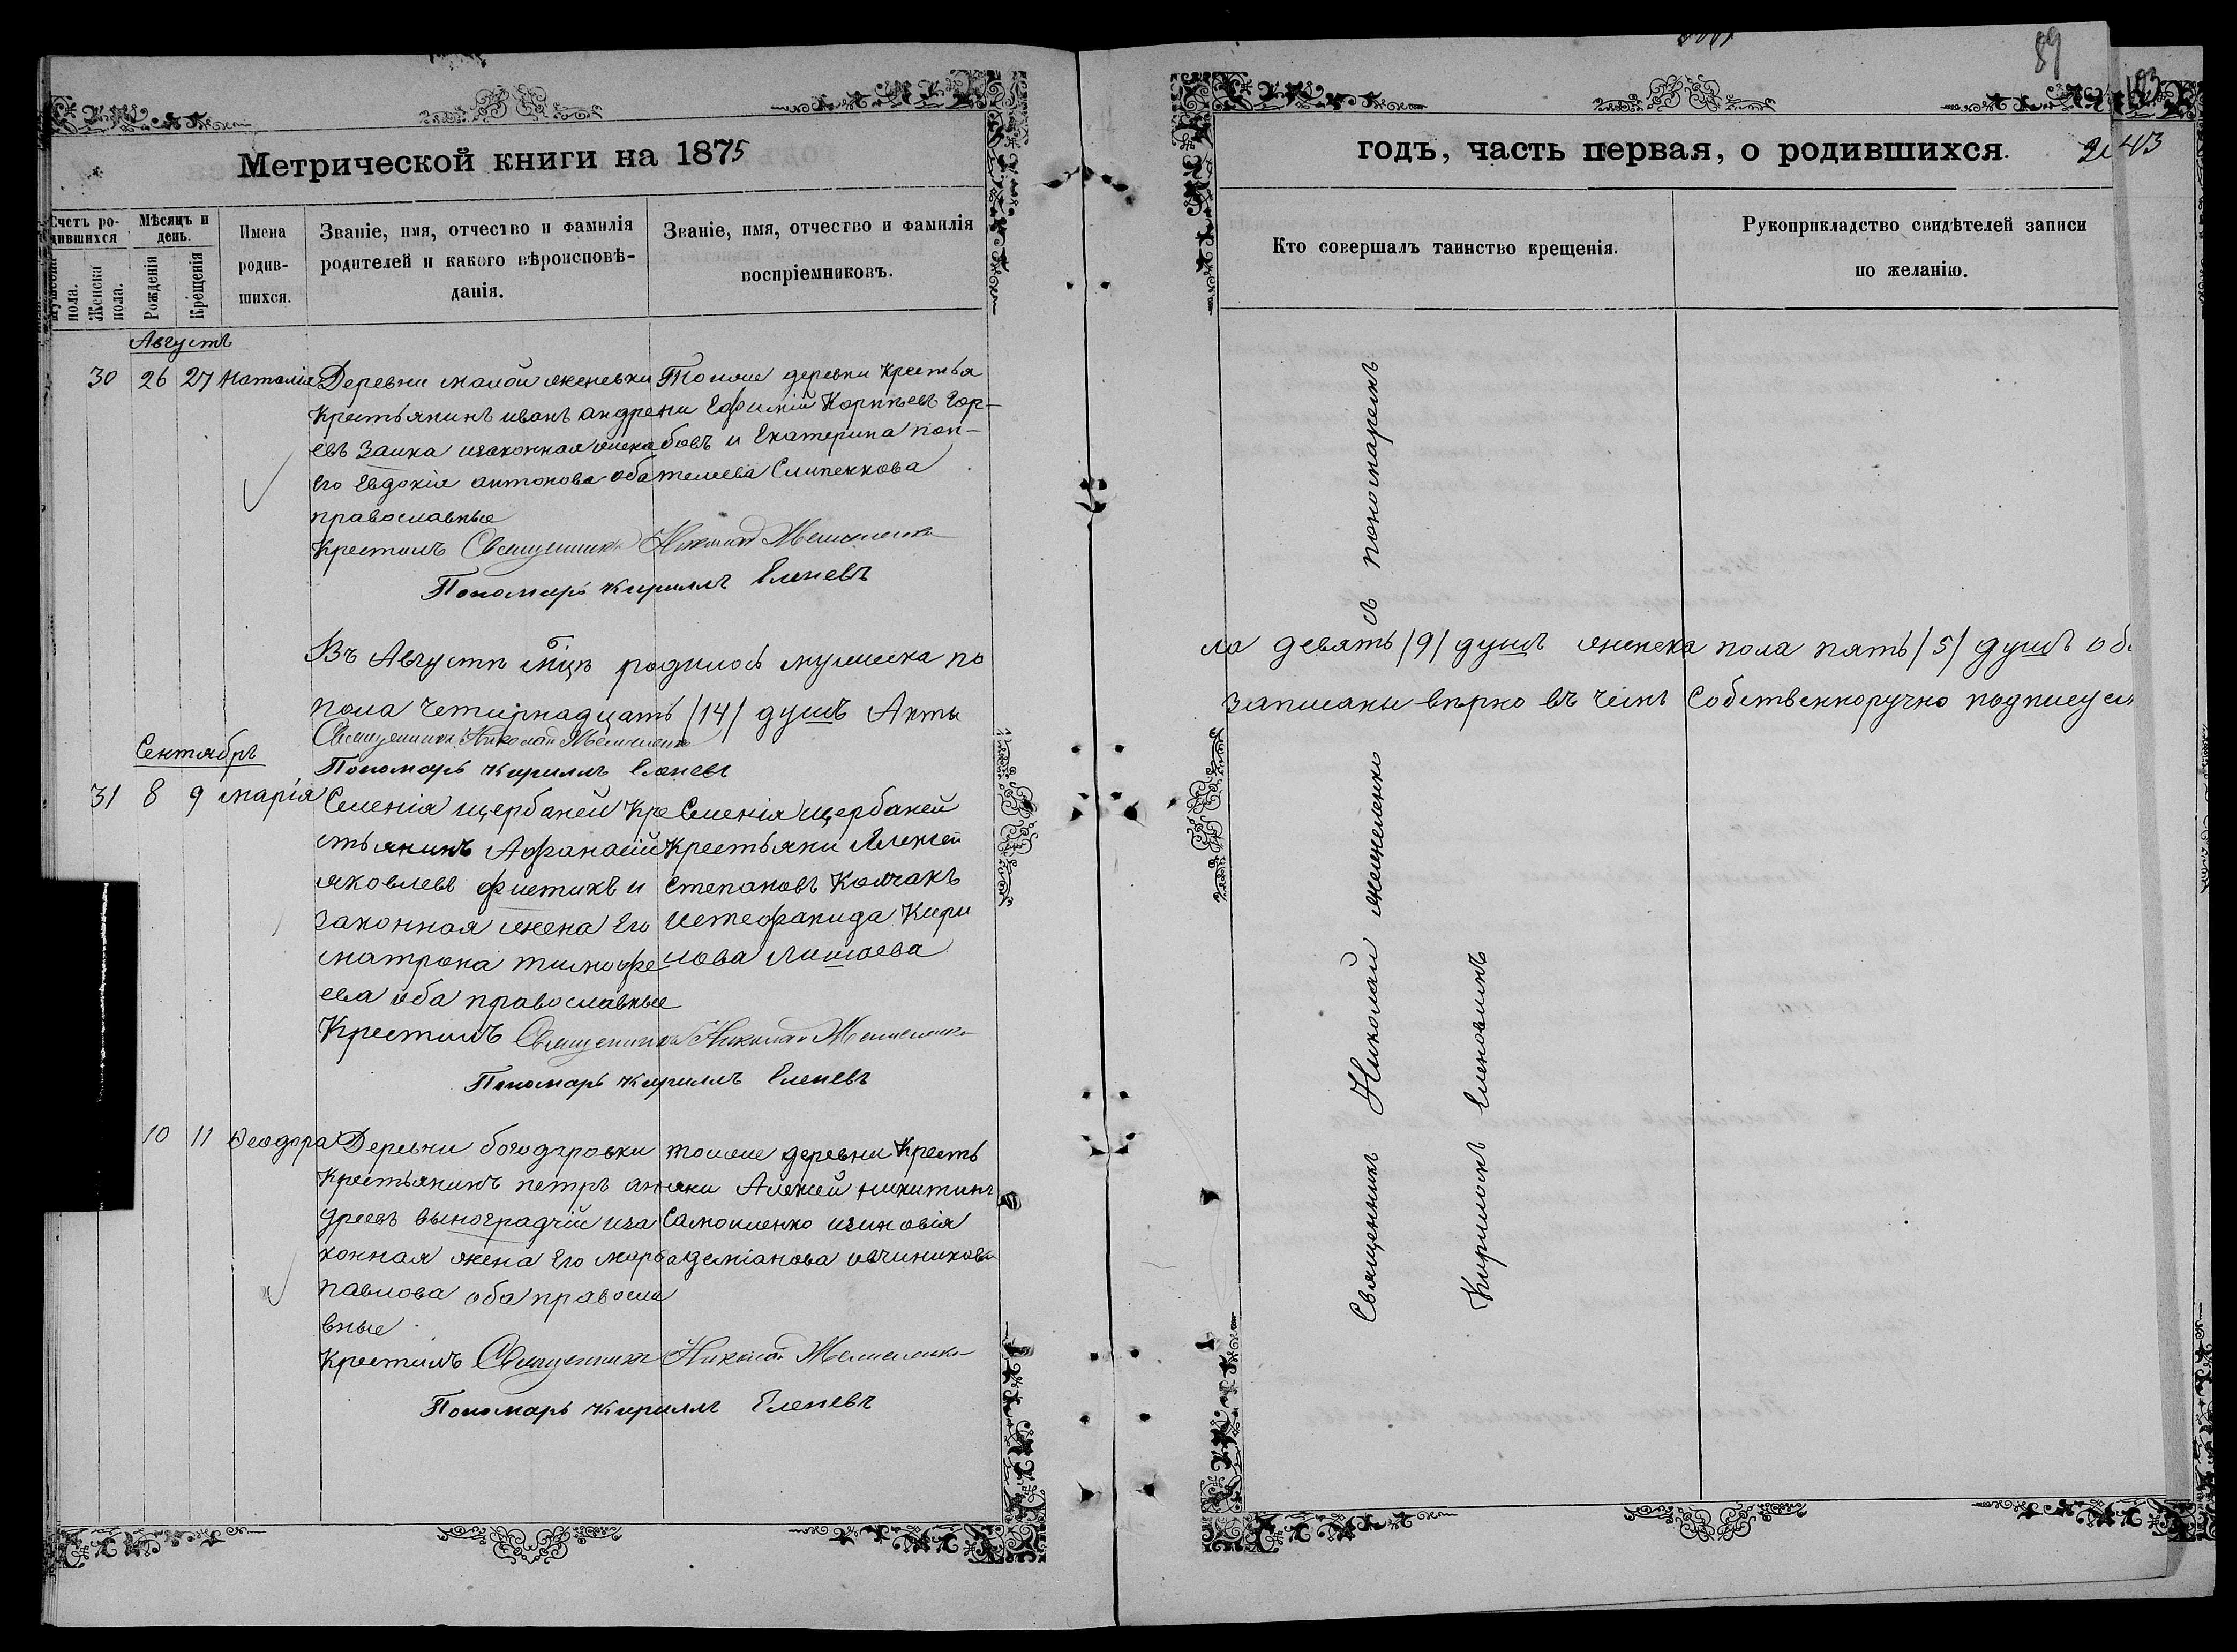 89
Метрической книги на 1875
годъ, часть первая, о родившихся.
Счетъ родившихся
Мѣсяцъ и день.
Имена родившихся.
Званіе, имя, отчество и фамилія родителей и какого вѣроисповѣданія.
Званіе, имя, отчество и фамилія воспріемниковъ.
Кто совершалъ таинство крещенія.
Рукоприкладство свидѣтелей записи по желанію.
пола.
Женска пола.
Рожденія
Крещенія
Августъ
30 26 27 Наталія
Деревни малой
Крестьянинъ иванъ андре
евъ Заика изаконная жена
его Евдокія антонова оба
православные
Тойже деревни Крестья
ни Ефимій Корніевъ Гор-
бовъ и Екатерина пан-
телеева Слипенкова
Крестилъ Священникъ Николай
Пономарь кирилъ Еленевъ
Въ Августѣ мцѣ родилось мужеска по
ла девять /9/ душъ женска пола пять /5/ душъ
пола четырнадцать /14/ душъ Акты
записаны вѣрно въ чемъ Собственноручно
Священникъ Николай
Пономарь кирилъ Еленевъ
Сентябрь
31 8 9 марія
Селенія щербаней Кре
стьянинъ Афанасій
яковлевъ фистикъ и
законная жена Его
матрона тимофе
ева оба православные
Селенія щербаней
Крестьяни Алексей
степановъ Колчакъ
истефанида Кири
лова
Крестилъ Священникъ Николай
Пономарь кирилъ Еленевъ
10 11 Феодора
Деревни богодаровки
Крестьянинъ петръ ан
дреевъ выноградчій иза
конная жена Его марфа
павлова оба правосла
вные
тойже деревни Кресть
яни Алексей никитинъ
Самойленко изиновія
деміанова овчиникова
Крестилъ Священникъ Николай
Пономарь кирилъ Еленевъ
Священникъ Николай
съ пономаремъ
Кириломъ Еленовимъ